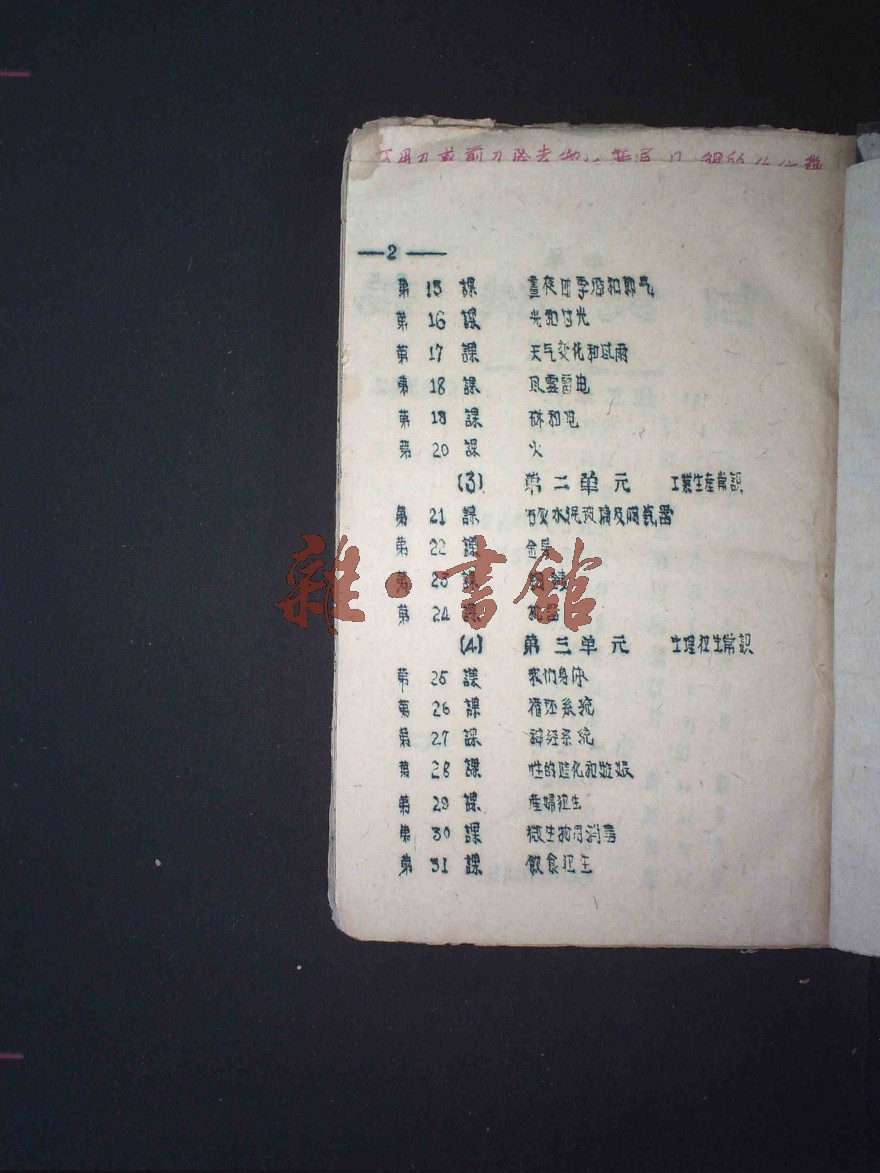 —2—
第 15 課 晝夜四季и和節气
第 16 課 光和日光
第 17 課 天气变化和風雨
第 18 課 風雲雷电
第 19 課 磁和电
第 20 課 火
(3) 第二單元 工業生産常識
第 21 課 石灰水泥玻璃及陶瓷器
第 22 課 金
第 23 課
第 24 課 机器
(4) 第三單元 生理衛生常識
第 25 課 我们身体
第 26 課 循环系统
第 27 課 神经系统
第 28 課 性的變化和妊娠
第 29 課 産婦衛生
第 30 課 微生物与消毒
第 31 課 飲食衛生
雜·書館